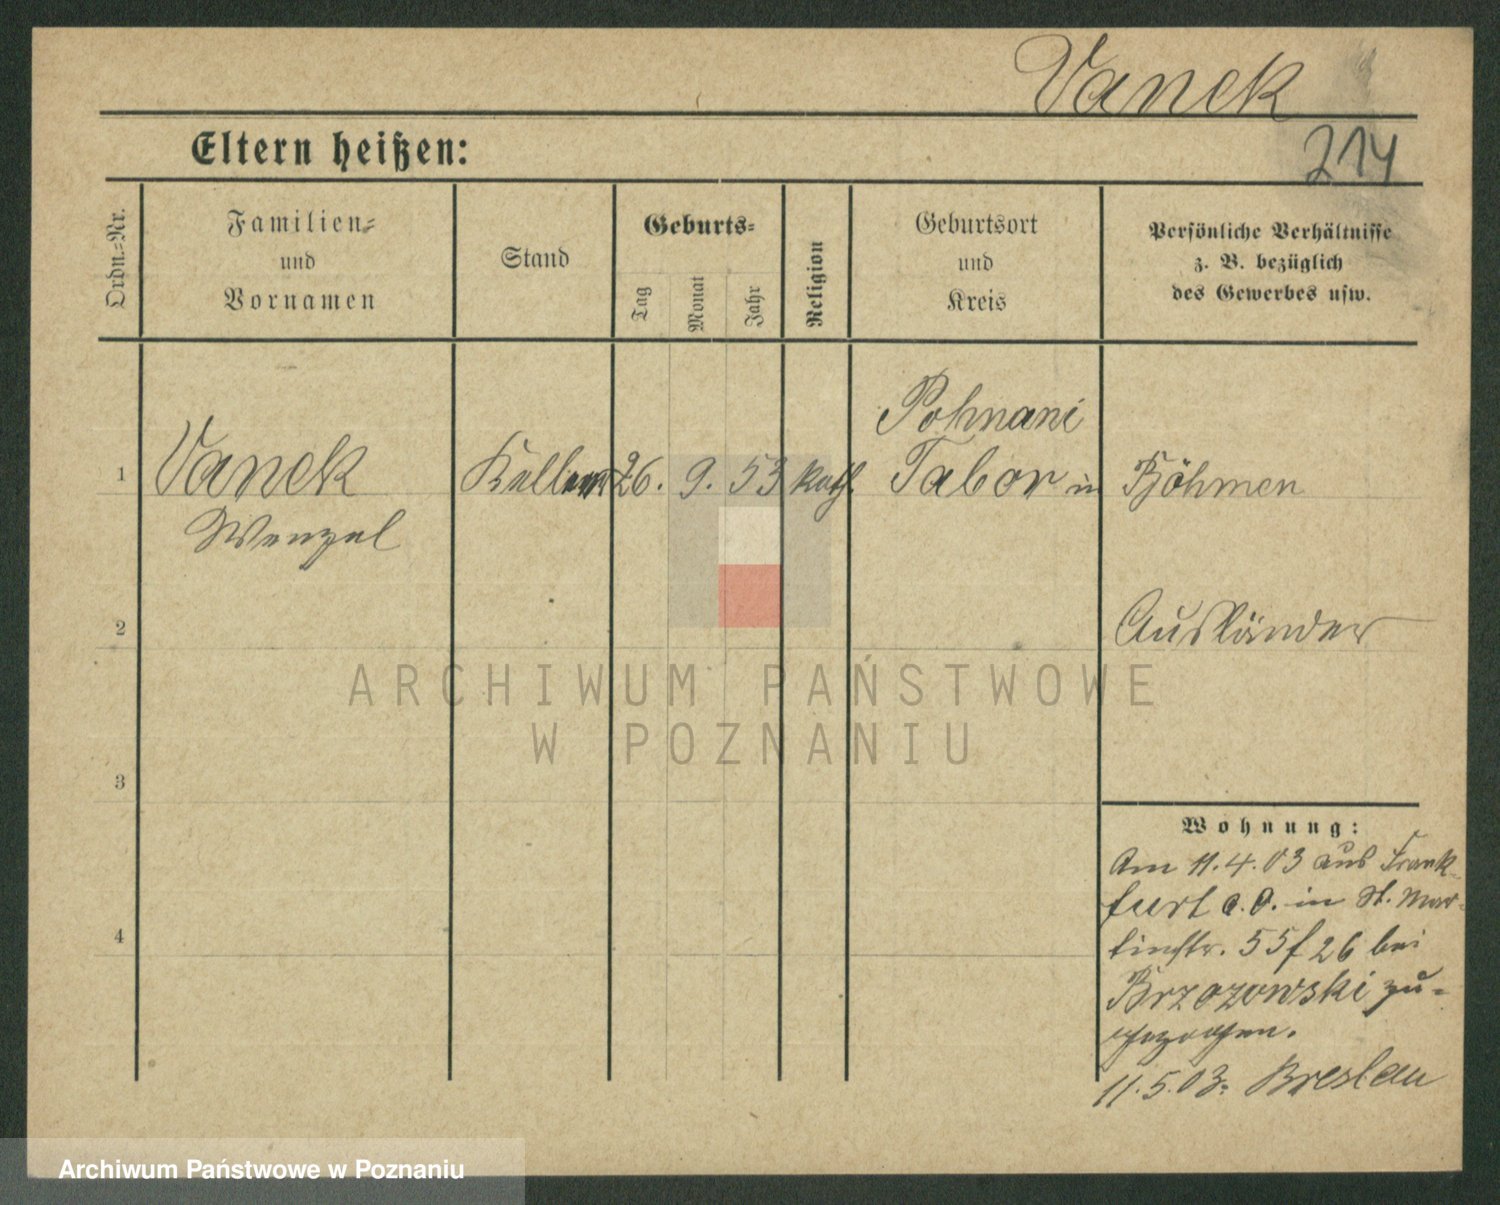 Vanek
214
Eltern heißen:
Ordn.=Nr.
Familien=
und
Vornamen
Stand
Geburts=
Tag
Monat
Jahr
Religion
Geburtsort
und
Kreis
Persönliche Verhältnisse
z. B. bezüglich
des Gewerbes usw.
1
Vanek
Wenzel
Kellner
26. 9. 53
kath.
Pohnani
Tabor in
Böhmen
2
Ausländer
ARCHIWUM PAŃSTWOWE
W POZNANIU
3
Wohnung:
Am 11.4.03 aus Frank-
furt a. O. in St. Mar-
tinstr. 55 f 26 bei
Brzozowski zu-
gezogen.
4
11.5.03. Breslau
Archiwum Państwowe w Poznaniu